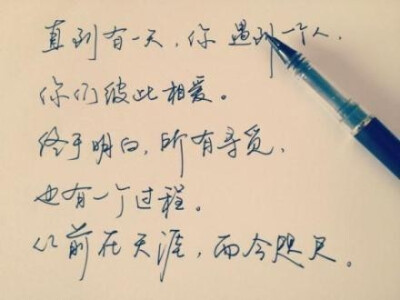 直到有一天，你遇到一个人，
你们彼此相爱。
终于明白，所有寻觅，
也有一个过程。
从前在天涯，而今咫尺。